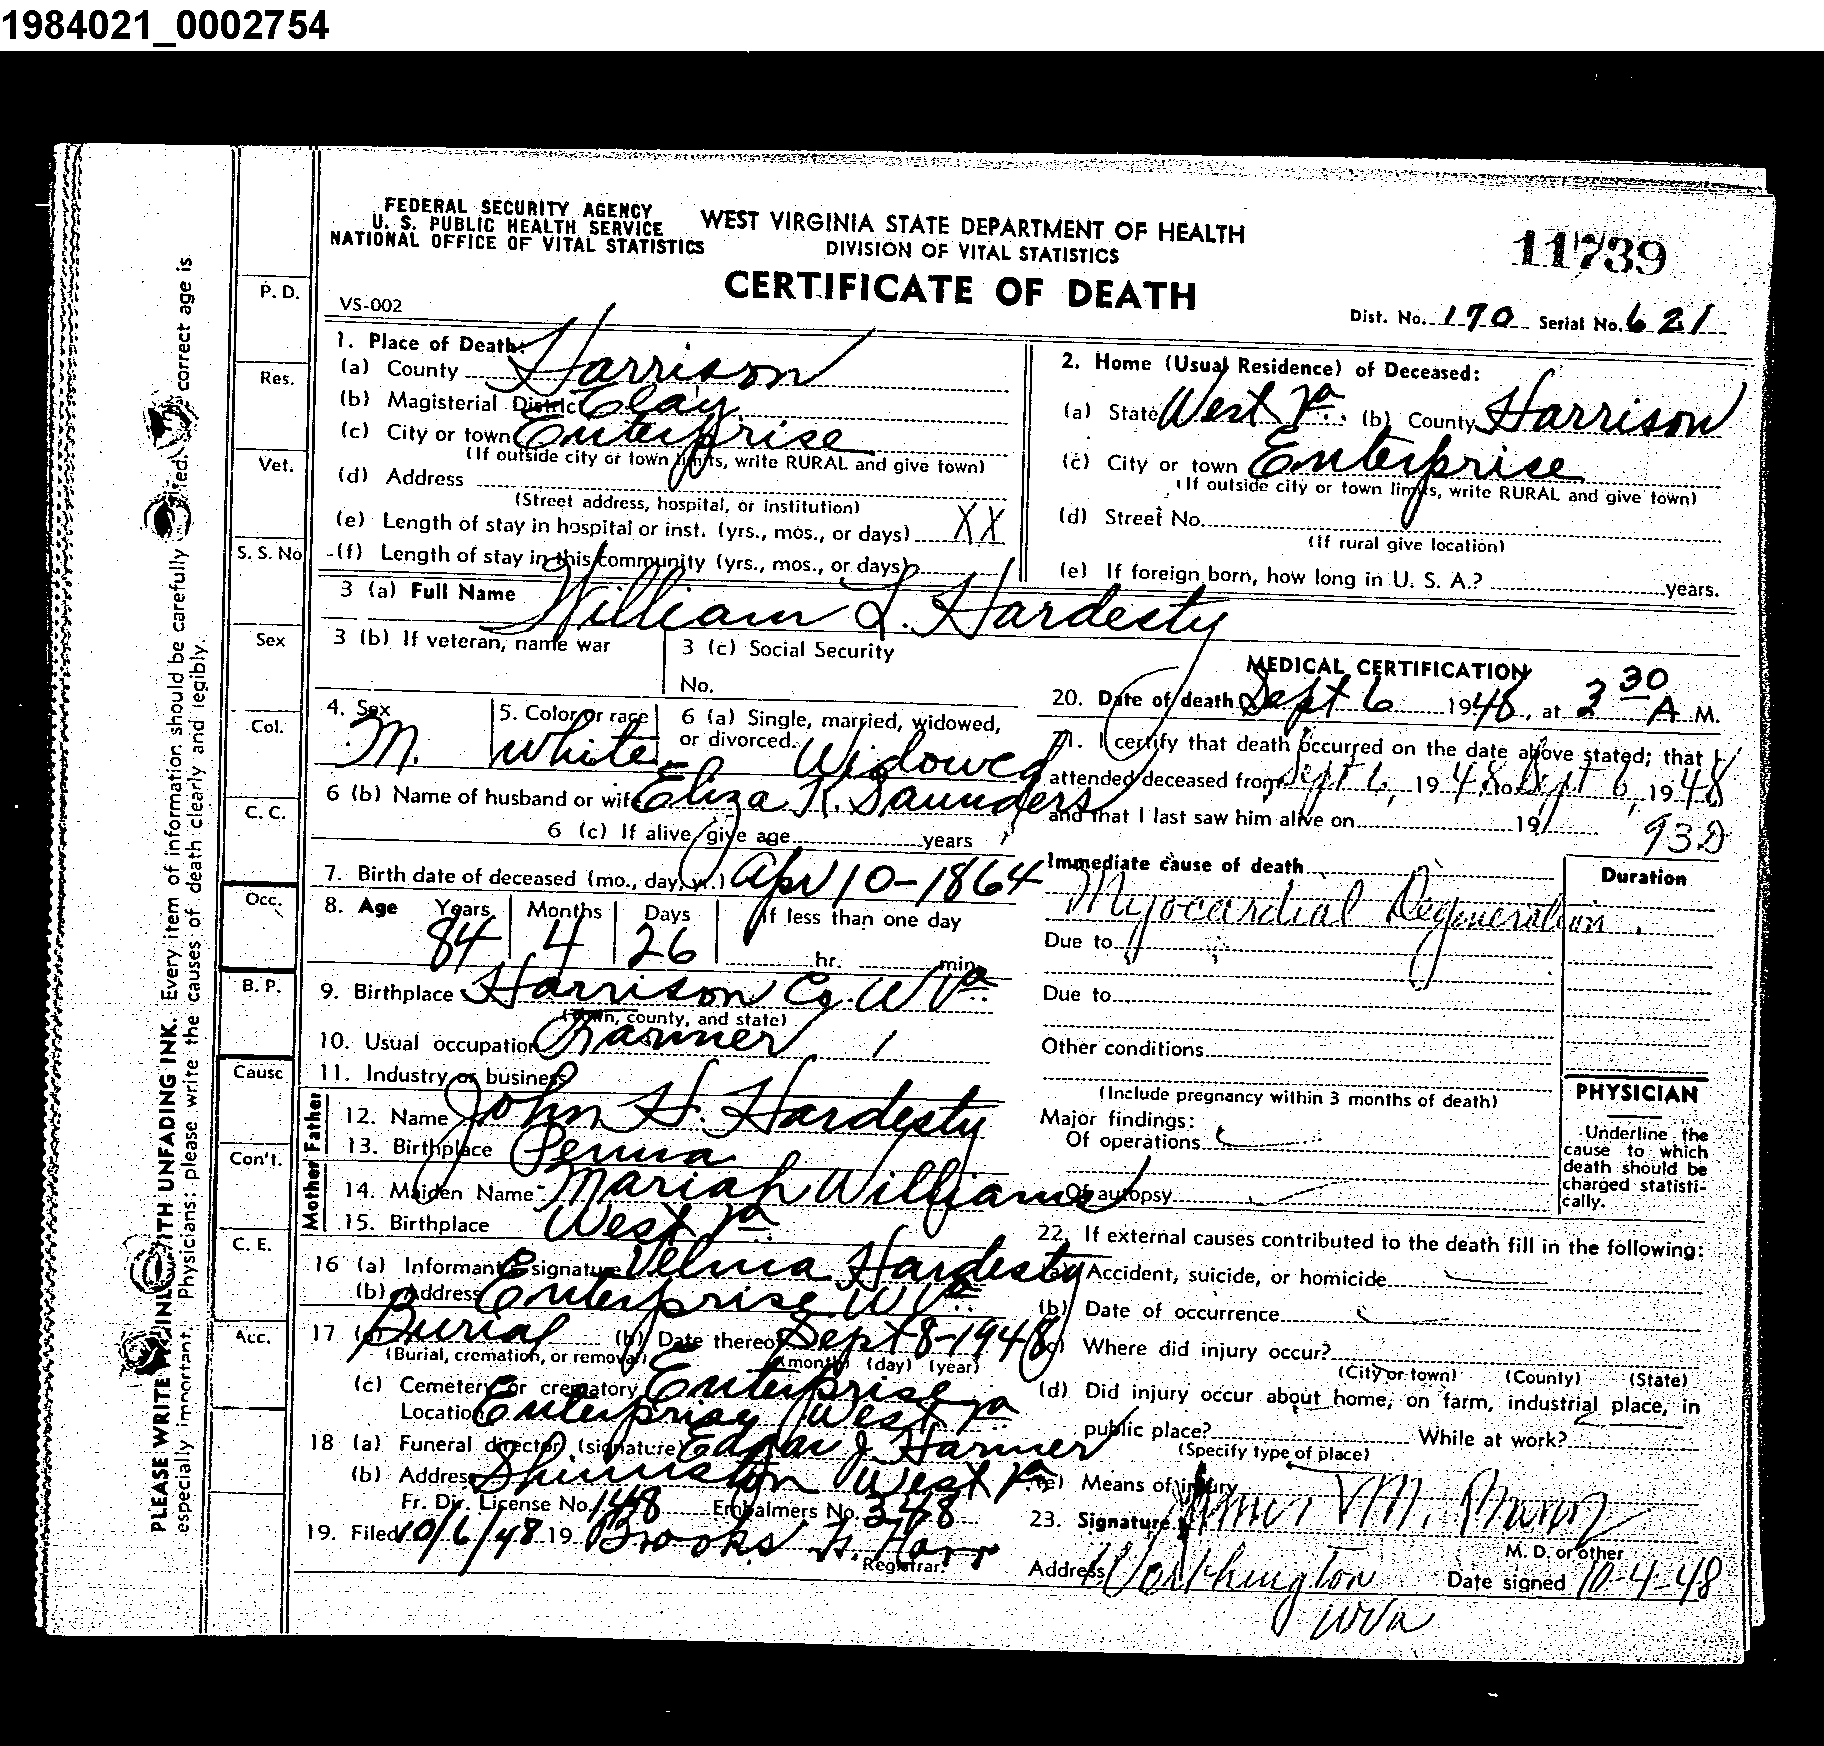 1984021_0002754
FEDERAL SECURITY AGENCY
U. S. PUBLIC HEALTH SERVICE
NATIONAL OFFICE OF VITAL STATISTICS
WEST VIRGINIA STATE DEPARTMENT OF HEALTH
DIVISION OF VITAL STATISTICS
CERTIFICATE OF DEATH
11739
VS-002
Dist. No. 170 Serial No. 621
1. Place of Death:
(a) County Harrison
(b) Magisterial District Clay
(c) City or town Enterprise
(If outside city or town limits, write RURAL and give town)
(d) Address
(Street address, hospital, or institution)
(e) Length of stay in hospital or inst. (yrs., mos., or days) XX
(f) Length of stay in this community (yrs., mos., or days)
2. Home (Usual Residence) of Deceased:
(a) State West Va. (b) County Harrison
(c) City or town Enterprise
(If outside city or town limits, write RURAL and give town)
(d) Street No.
(If rural give location)
(e) If foreign born, how long in U. S. A.? years.
3 (a) Full Name William L. Hardesty
3 (b) If veteran, name war
3 (c) Social Security
No.
4. Sex M.
5. Color or race white
6 (a) Single, married, widowed,
or divorced. Widowed
6 (b) Name of husband or wife Eliza K. Saunders
6 (c) If alive, give age years
7. Birth date of deceased (mo., day, yr.) Apr 10-1864
8. Age Years Months Days If less than one day
84 4 26 hr. min.
9. Birthplace Harrison Co. W Va.
(Town, county, and state)
10. Usual occupation Farmer
11. Industry or business
Father
12. Name John H. Hardesty
13. Birthplace Penna
Mother
14. Maiden Name Mariah Williams
15. Birthplace West Va.
16 (a) Informant's signature Velma Hardesty
(b) Address Enterprise W Va.
17 (a) Burial (b) Date thereof Sept 8-1948
(Burial, cremation, or removal) (month) (day) (year)
(c) Cemetery or crematory Enterprise
Location Enterprise West Va
18 (a) Funeral director (signature) Edgar J. Harmer
(b) Address Shinnston West Va.
Fr. Dir. License No. 148 Embalmers No. 348
19. Filed 10/6/48 19 Brooks H. Harr
Registrar.
MEDICAL CERTIFICATION
20. Date of death Sept 6 1948, at 3 30 A M.
21. I certify that death occurred on the date above stated; that I
attended deceased from Sept 6, 1948, to Sept 6, 1948
and that I last saw him alive on 19
93D
Immediate cause of death Duration
Myocardial Degeneration.
Due to
Due to
Other conditions
(Include pregnancy within 3 months of death)
Major findings:
Of operations
Of autopsy
PHYSICIAN
Underline the
cause to which
death should be
charged statisti-
cally.
22. If external causes contributed to the death fill in the following:
(a) Accident, suicide, or homicide
(b) Date of occurrence
(c) Where did injury occur?
(City or town) (County) (State)
(d) Did injury occur about home, on farm, industrial place, in
public place? While at work?
(Specify type of place)
(e) Means of injury
23. Signature
M. D. or other
Address Worthington Date signed 10-4-48
WVa
P. D.
Res.
Vet.
S. S. No
Sex
Col.
C. C.
Occ.
B. P.
Cause
Con't.
C. E.
Acc.
PLEASE WRITE PLAINLY WITH UNFADING INK. Every item of information should be carefully correct age is
especially important. Physicians: please write the causes of death clearly and legibly.